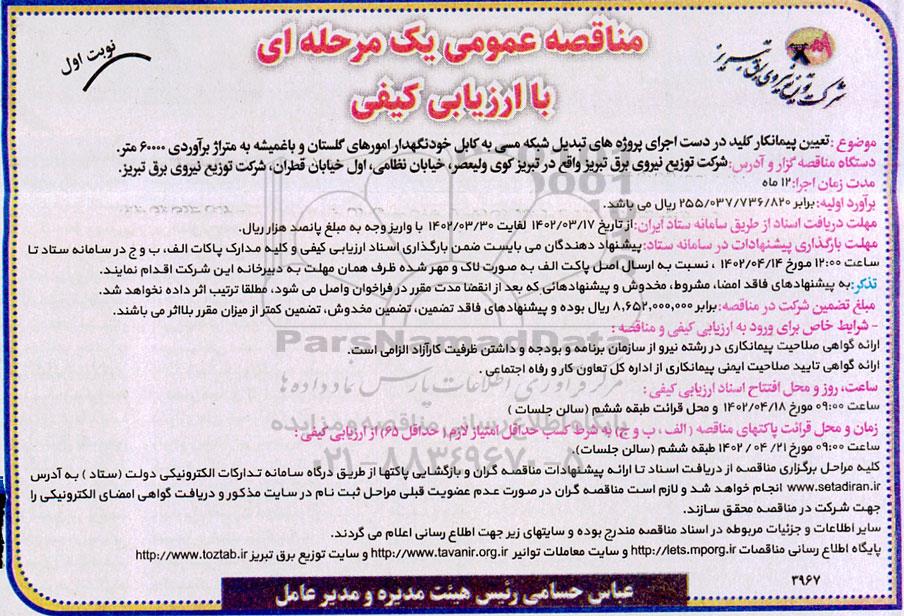 مناقصه عمومی یک مرحله ای
با ارزیابی کیفی
نوبت اول
شرکت توزیع نیروی برق تبریز
موضوع : تعیین پیمانکار کلید در دست اجرای پروژه های تبدیل شبکه مسی به کابل خودنگهدار امورهای گلستان و باغمیشه به متراژ برآوردی ۶۰۰۰۰ متر.
دستگاه مناقصه گزار و آدرس: شرکت توزیع نیروی برق تبریز واقع در تبریز کوی ولیعصر، خیابان نظامی، اول خیابان قطران، شرکت توزیع نیروی برق تبریز.
مدت زمان اجرا: ۱۲ ماه
برآورد اولیه: برابر ۲۵۵/۰۳۷/۷۳۶/۸۲۰ ریال می باشد.
مهلت دریافت اسناد از طریق سامانه ستاد ایران: از تاریخ ۱۴۰۲/۰۳/۱۷ لغایت ۱۴۰۲/۰۳/۳۰ با واریز وجه به مبلغ پانصد هزار ریال.
مهلت بارگذاری پیشنهادات در سامانه ستاد: پیشنهاد دهندگان می بایست ضمن بارگذاری اسناد ارزیابی کیفی و کلیه مدارک پاکات الف، ب و ج در سامانه ستاد تا
ساعت ۱۲:۰۰ مورخ ۱۴۰۲/۰۴/۱۴ ، نسبت به ارسال اصل پاکت الف به صورت لاک و مهر شده ظرف همان مهلت به دبیرخانه این شرکت اقدام نمایند.
تذکر: به پیشنهادهای فاقد امضا، مشروط، مخدوش و پیشنهادهائی که بعد از انقضا مدت مقرر در فراخوان واصل می شود، مطلقا ترتیب اثر داده نخواهد شد.
مبلغ تضمین شرکت در مناقصه: برابر ۸,۶۵۲,۰۰۰,۰۰۰ ریال بوده و پیشنهادهای فاقد تضمین، تضمین مخدوش، تضمین کمتر از میزان مقرر بلااثر می باشند.
- شرایط خاص برای ورود به ارزیابی کیفی و مناقصه :
ارائه گواهی صلاحیت پیمانکاری در رشته نیرو از سازمان برنامه و بودجه و داشتن ظرفیت کارآزاد الزامی است.
ارائه گواهی تایید صلاحیت ایمنی پیمانکاری از اداره کل تعاون کار و رفاه اجتماعی .
ساعت، روز و محل افتتاح اسناد ارزیابی کیفی :
ساعت ۰۹:۰۰ مورخ ۱۴۰۲/۰۴/۱۸ و محل قرائت طبقه ششم (سالن جلسات )
زمان و محل قرائت پاکتهای مناقصه ( الف ، ب و ج) به شرط کسب حداقل امتیاز لازم( حداقل ۶۵) از ارزیابی کیفی :
ساعت ۰۹:۰۰ مورخ ۱۴۰۲/۰۴/۲۱ طبقه ششم (سالن جلسات).
کلیه مراحل برگزاری مناقصه از دریافت اسناد تا ارائه پیشنهادات مناقصه گران و بازگشایی پاکتها از طریق درگاه سامانه تدارکات الکترونیکی دولت (ستاد ) به آدرس
www.setadiran.ir انجام خواهد شد و لازم است مناقصه گران در صورت عدم عضویت قبلی مراحل ثبت نام در سایت مذکور و دریافت گواهی امضای الکترونیکی را
جهت شرکت در مناقصه محقق سازند.
سایر اطلاعات و جزئیات مربوطه در اسناد مناقصه مندرج بوده و سایتهای زیر جهت اطلاع رسانی اعلام می گردند.
پایگاه اطلاع رسانی مناقصات http://iets.mporg.ir و سایت معاملات توانیر http://www.tavanir.org.ir و سایت توزیع برق تبریز http://www.toztab.ir
۳۹۶۷
عباس حسامی رئیس هیئت مدیره و مدیر عامل
ParsNamadData
مرکز فرآوری اطلاعات پارس نماد داده ها
۰۲۱-۸۸۳۴۹۶۷۰-۵